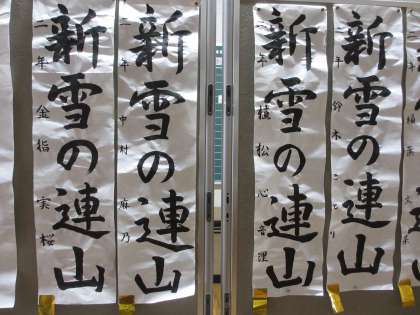 新雪の連山
二年 金指 実桜
新雪の連山
二年 中村 麻乃
新雪の連山
植松 心音理
新雪の連山
年 鈴木 ことり